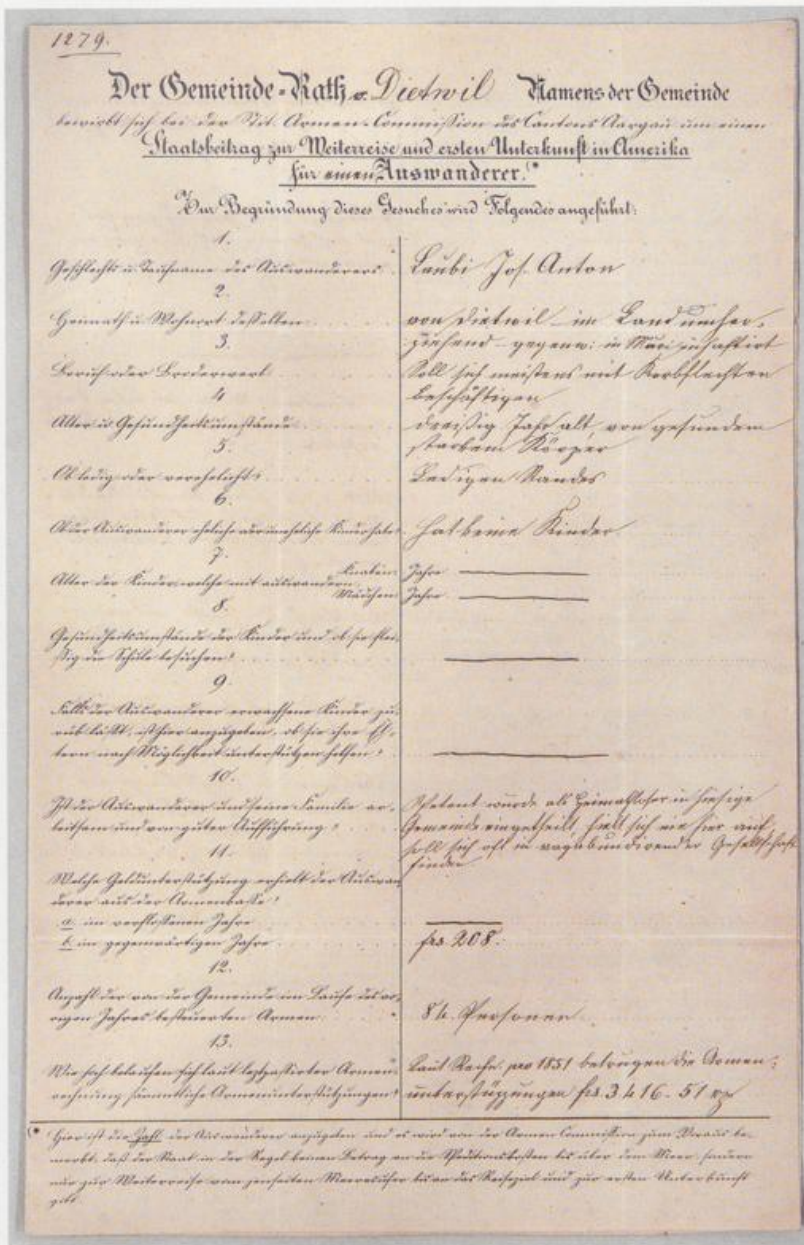 1279.
Der Gemeinde-Rath v. Dietwil Namens der Gemeinde
bewirbt sich bei der Tit. Armen-Commission des Cantons Aargau um einen
Staatsbeitrag zur Weiterreise und ersten Unterkunft in Amerika
für einen Auswanderer.(*
Zur Begründung dieses Gesuches wird Folgendes angeführt:
1.
Geschlechts u. Taufname des Auswanderers. Laubi Jos. Anton
2.
Heimath u. Wohnort desselben von Dietwil im Land umher-
ziehend gegenw: in Muri inhaftirt
3.
Beruf oder Broderwerb Soll sich meistens mit Korbflechten
beschäftigen
4
Alter u. Gesundheitsumstände dreißig Jahr alt, von gesundem
starkem Körper
5.
Ob ledig oder verehelicht? Ledigen Standes
6.
Ob der Auswanderer eheliche oder uneheliche Kinder habe? hat keine Kinder
7.
Alter der Kinder, welche mit auswandern, Knaben Jahre
Mädchen Jahre
8.
Gesundheitsumstände der Kinder und ob sie flei-
ßig die Schule besuchen?
9
Falls der Auswanderer erwachsene Kinder zu-
rück läßt, ist hier anzugeben, ob sie ihre El-
tern nach Möglichkeit unterstützen helfen?
10.
Ist der Auswanderer und seine Familie ar-
beitsam und von guter Aufführung? Petent wurde als Heimathloser in hiesige
Gemeinde eingetheilt, hielt sich nie hier auf
soll sich oft in vagabundirender Gesellschaft
finden
11.
Welche Geldunterstützung erhielt der Auswan
derer aus der Armenkasse?
a. im verflossenen Jahre
b. im gegenwärtigen Jahre frs. 208.
12.
Anzahl der von der Gemeinde im Laufe des vo-
rigen Jahres besteuerten Armen. 84. Personen
13.
Wie hoch belaufen sich laut letztpassirter Armen-
rechnung sämmtliche Armenunterstützungen? Laut Rechn. pro 1851 betrugen die Armen-
unterstützungen frs. 3416. 51 rp
(* Hier ist die Zahl der Auswanderer anzugeben und es wird von der Armen Commission zum Voraus be-
merkt, daß der Staat in der Regel keinen Betrag an die Speditionskosten bis über dem Meer, sondern
nur zur Weiterreise vom jenseiten Meeresufer bis an das Reiseziel und zur ersten Unterkunft
gibt.